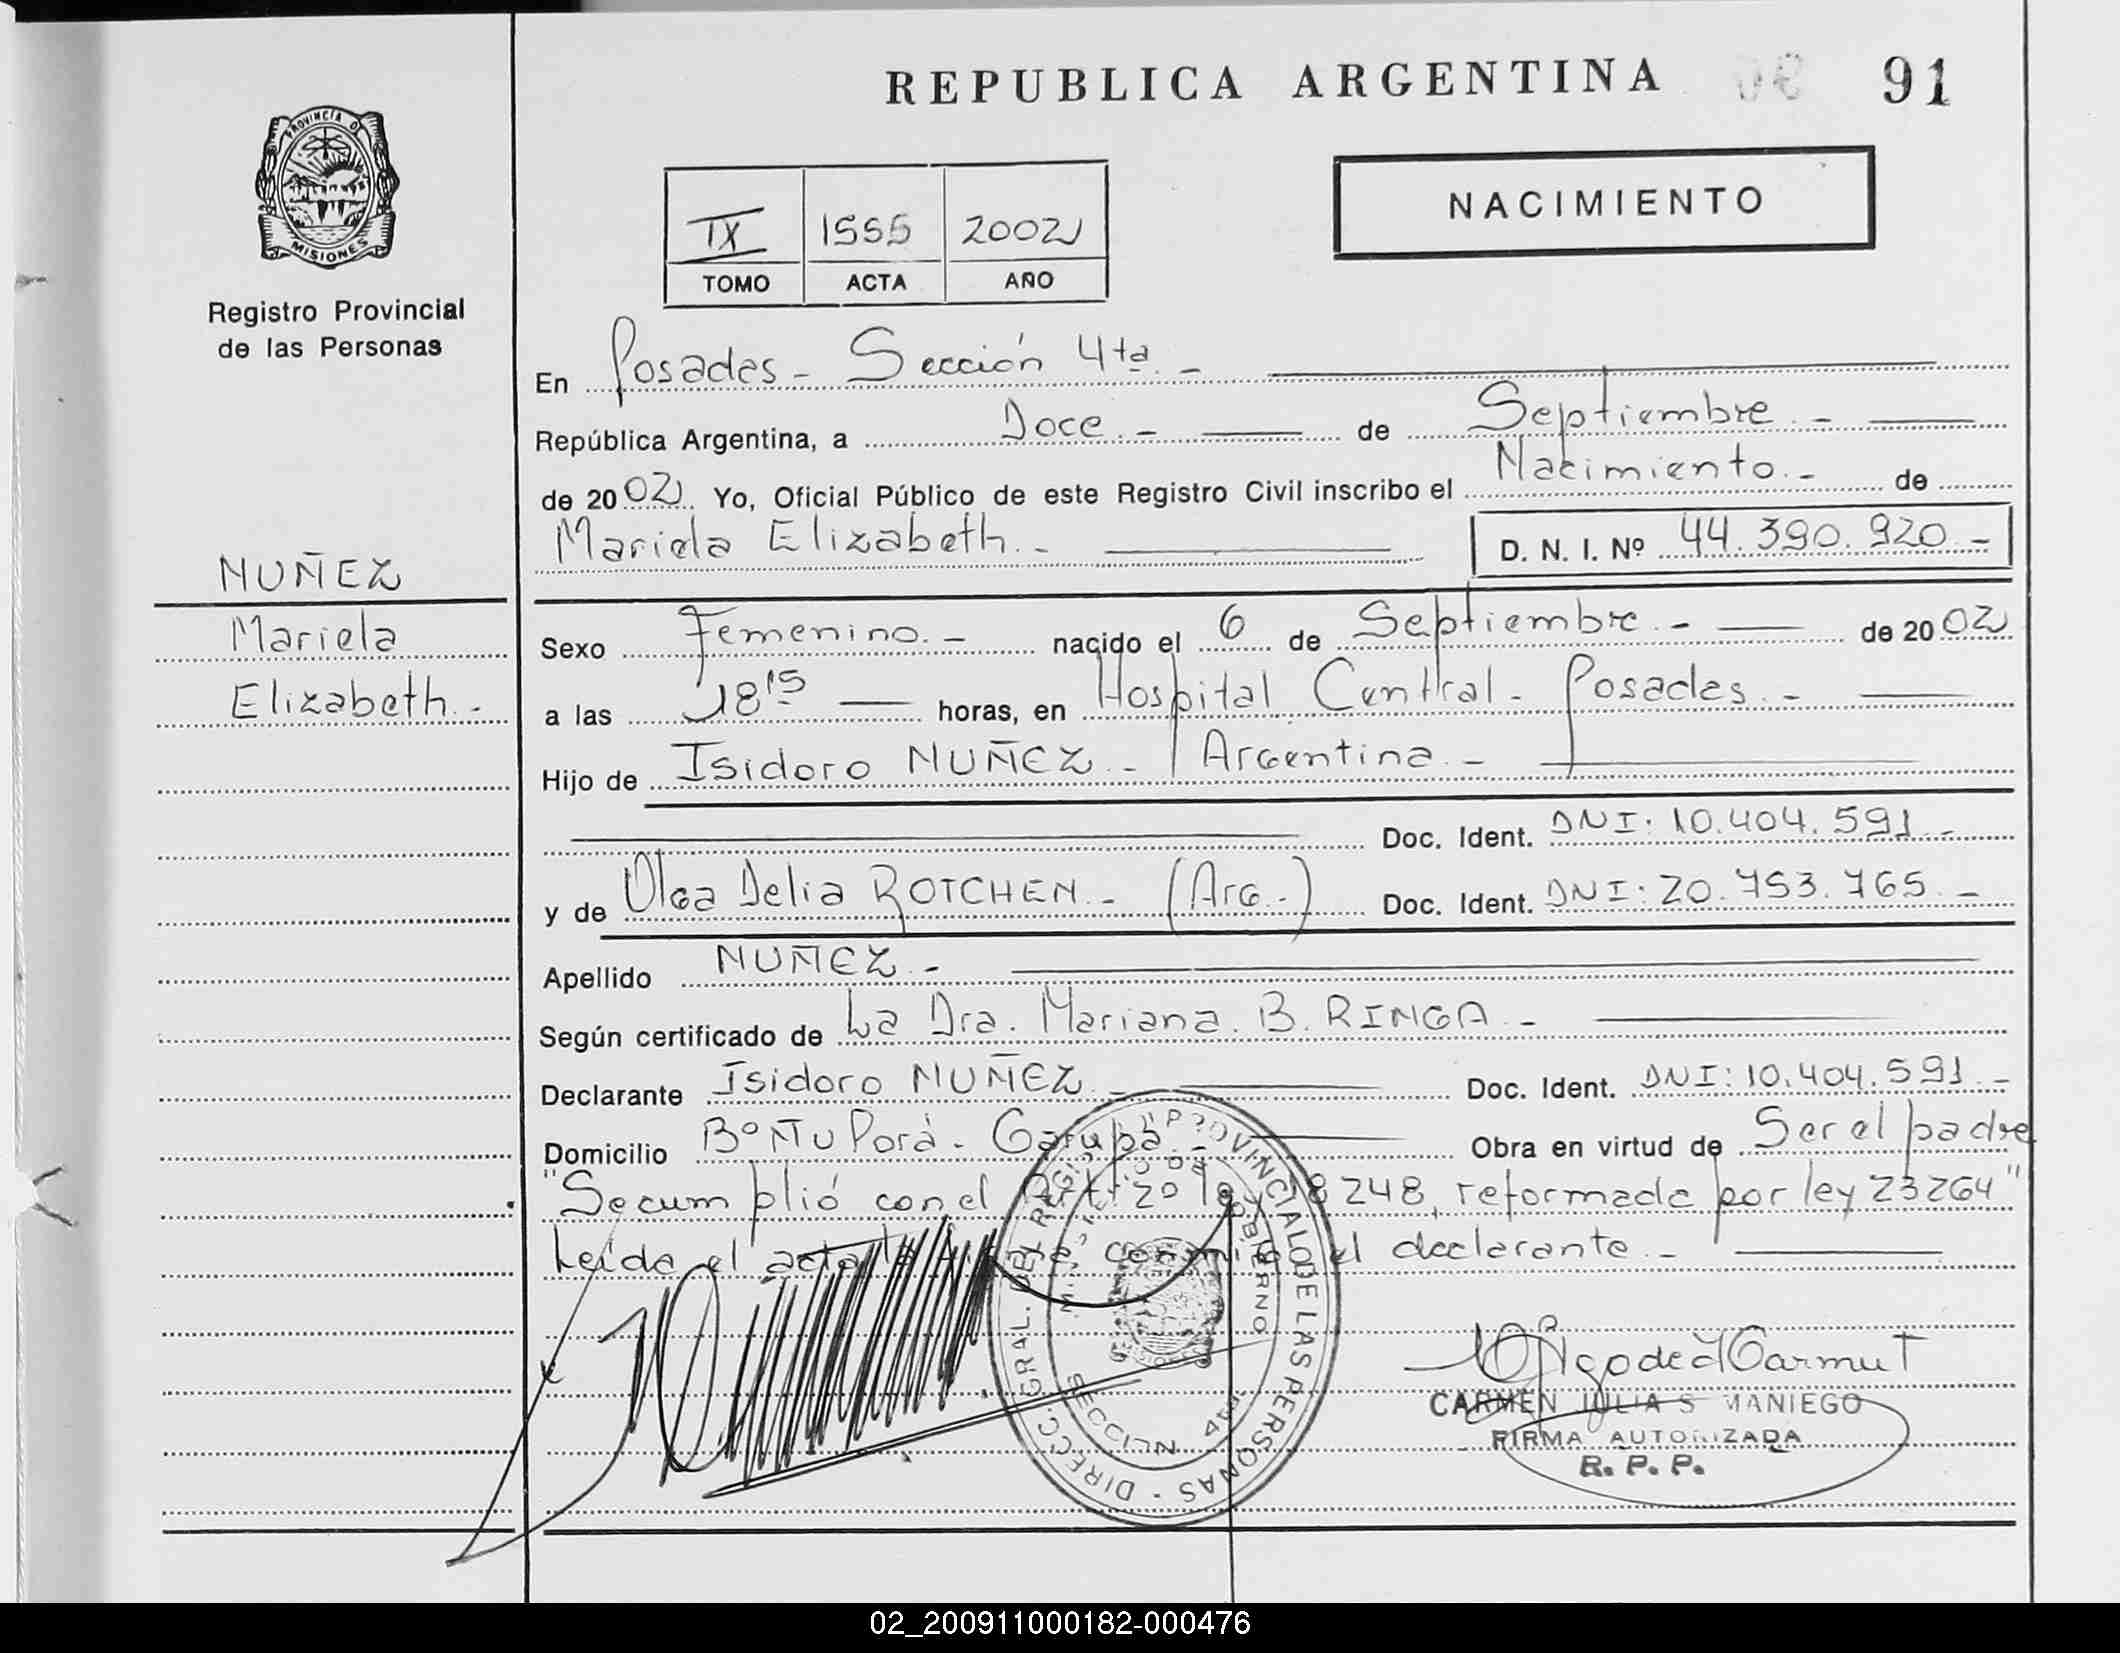 REPUBLICA ARGENTINA 91
PROVINCIA DE MISIONES
Registro Provincial
de las Personas
NACIMIENTO
IX 1555 2002
TOMO ACTA AÑO
En Posadas - Sección 4ta. -
República Argentina, a Doce. - de Septiembre. -
de 2002. Yo, Oficial Público de este Registro Civil inscribo el Nacimiento. - de
Mariela Elizabeth. - D. N. I. Nº 44.390.920 -
NUÑEZ
Mariela
Elizabeth. -
Sexo Femenino. - nacido el 6 de Septiembre. - de 2002
a las 18 15 horas, en Hospital Central - Posadas. -
Hijo de Isidoro NUÑEZ - Argentina. -
Doc. Ident. DNI: 10.404.591 -
y de Olga Delia ROTCHEN - (Arg. -) Doc. Ident. DNI: 20.753.765 -
Apellido NUÑEZ. -
Según certificado de La Dra. Mariana. B. RINGA -
Declarante Isidoro NUÑEZ - Doc. Ident. DNI: 10.404.591 -
Domicilio Bº Ñu Porá - Garupá. - Obra en virtud de Ser el padre
"Se cumplió con el Art. 20 ley 18248, reformada por ley 23264"
Leída el acta la firma conmigo el declarante. -
DIRECC. GRAL. DEL REGISTRO PROVINCIAL DE LAS PERSONAS
GOBIERNO
SECCION 4ta
CARMEN JULIA S MANIEGO
FIRMA AUTORIZADA
R. P. P.
02_200911000182-000476